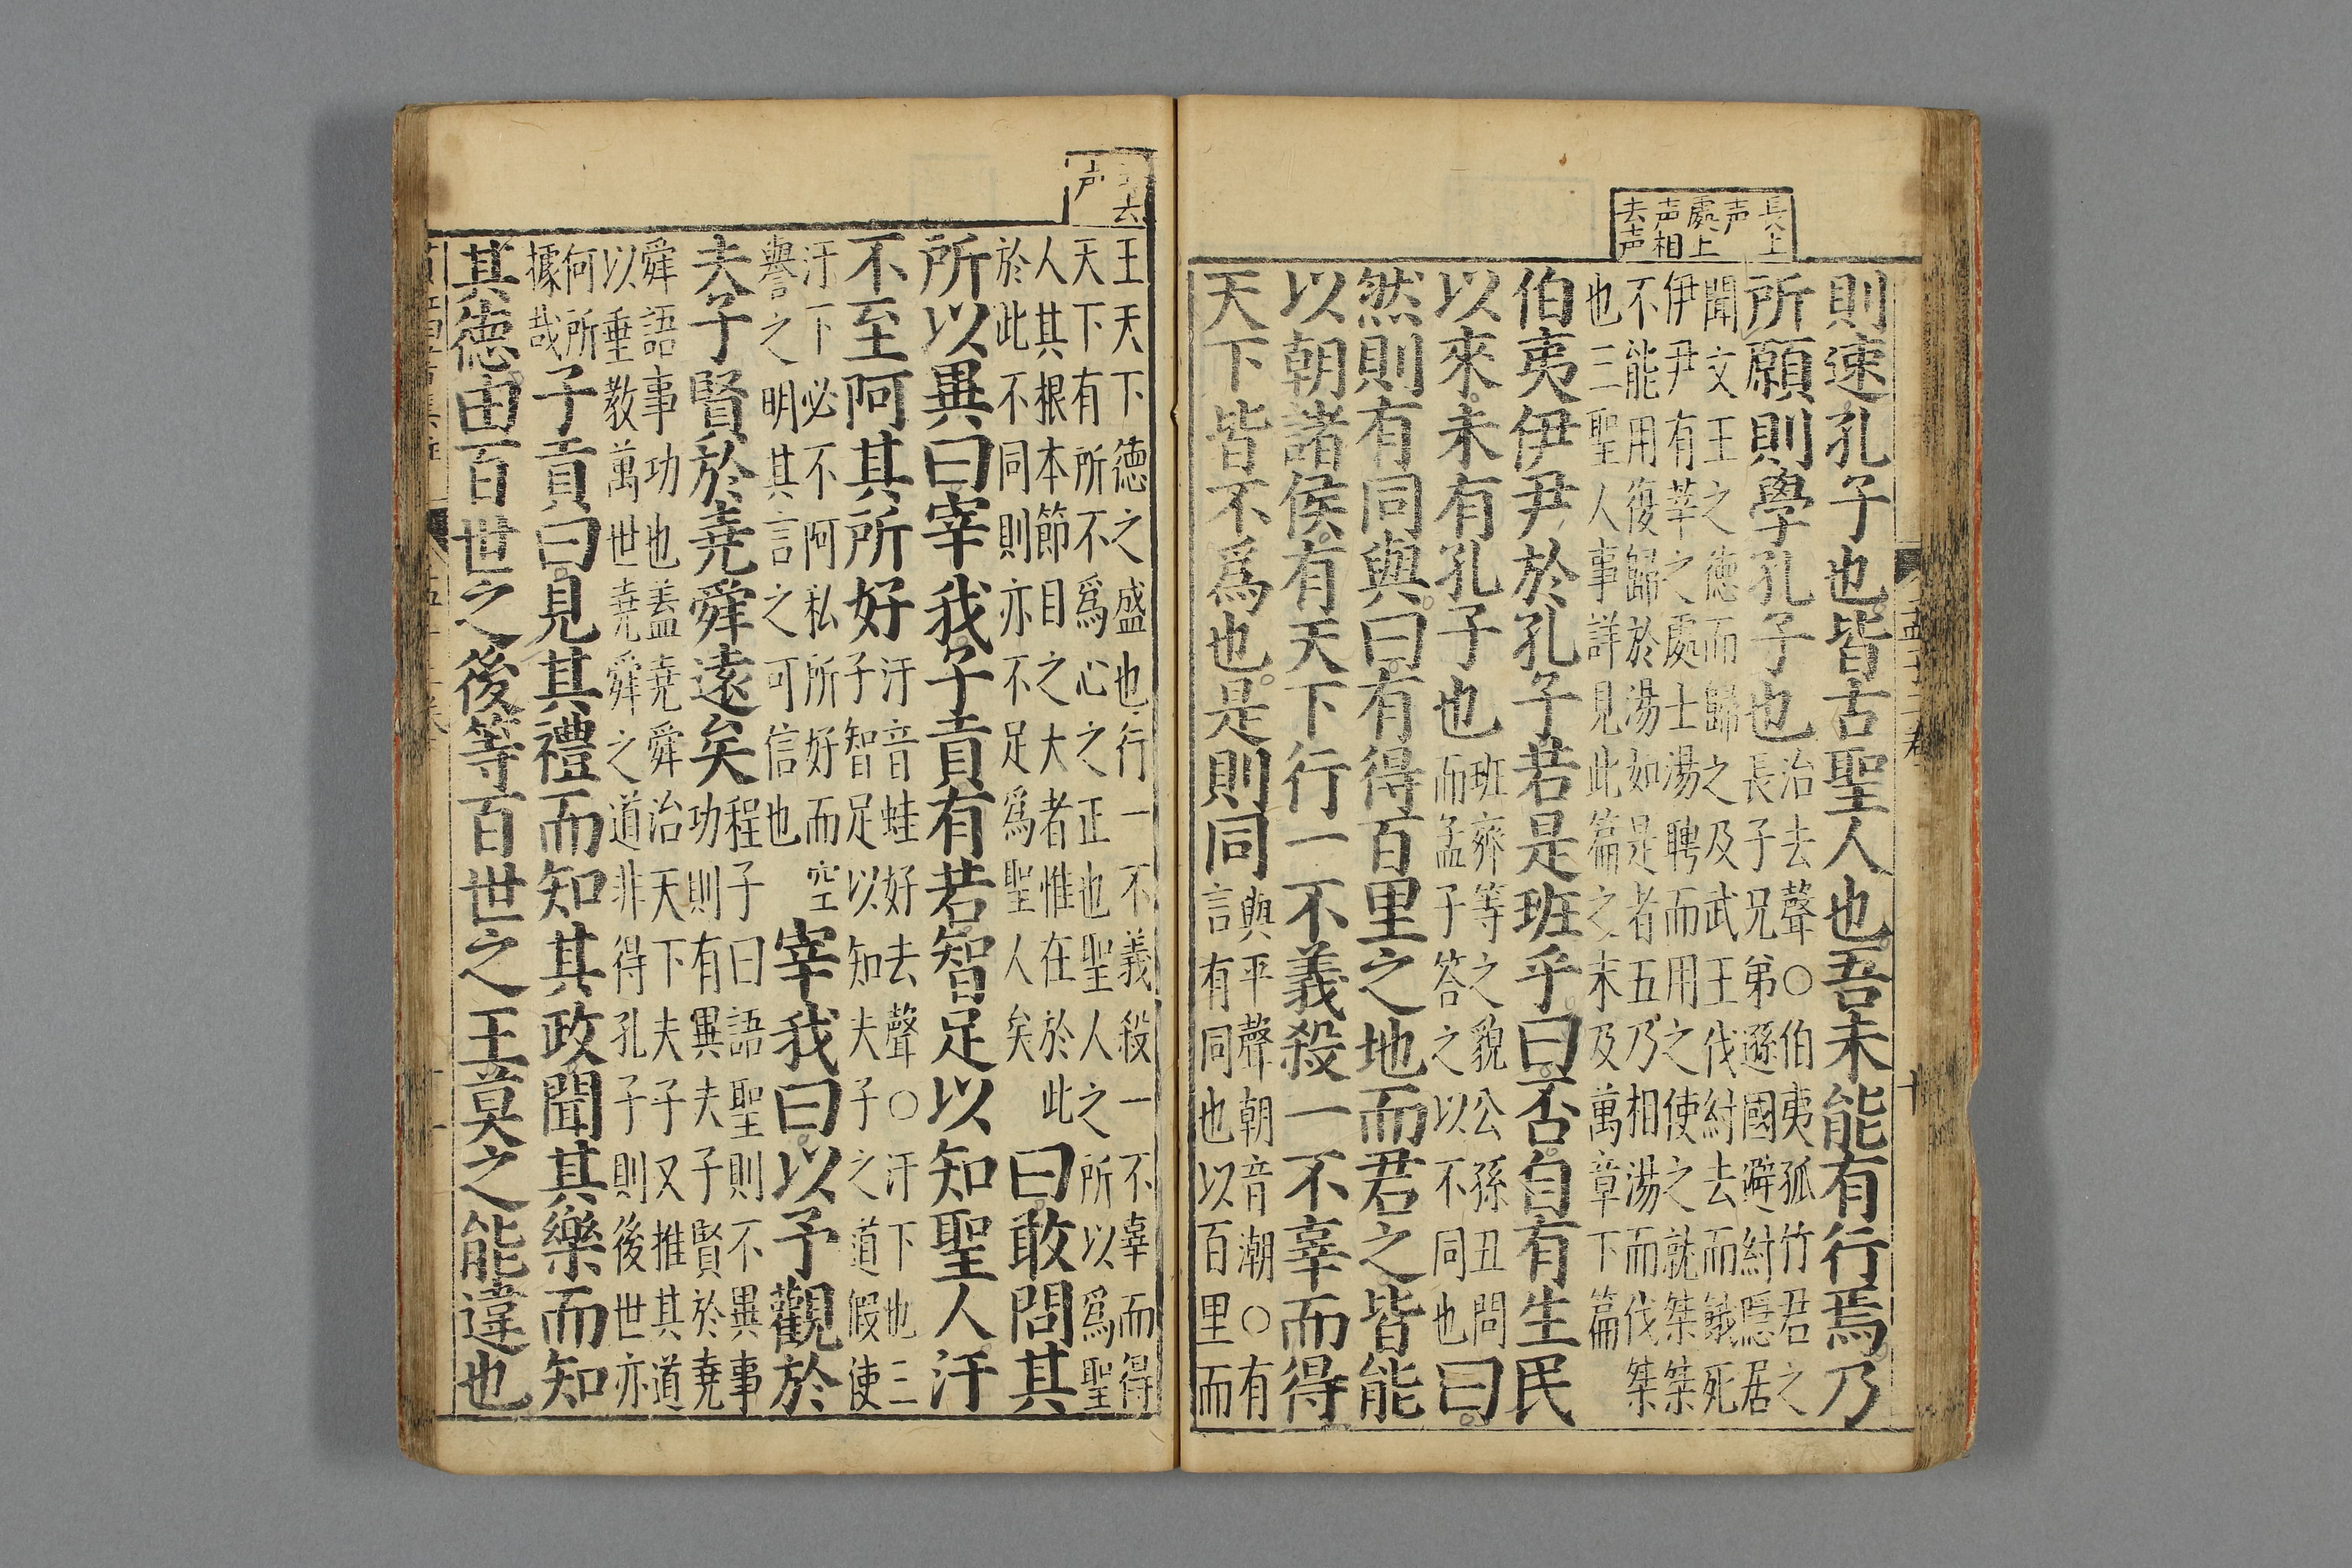 長上
声
處上
声相
去声
則速孔子也皆古聖人也吾未能有行焉乃
所願則學孔子也
治去聲○伯夷孤竹君之
長子兄弟遜國避紂隱居
聞文王之德而歸之及武王伐紂去而餓死
伊尹有莘之處士湯聘而用之使之就桀桀
不能用復歸於湯如是者五乃相湯而伐桀
也三聖人事詳見此篇之末及萬章下篇
伯夷伊尹於孔子若是班乎曰否自有生民
以來未有孔子也
班齊等之貌公孫丑問
而孟子答之以不同也
曰
然則有同與曰有得百里之地而君之皆能
以朝諸侯有天下行一不義殺一不辜而得
天下皆不爲也是則同
與平聲朝音潮○有
言有同也以百里而
去
声
王天下德之盛也行一不義殺一不辜而得
天下有所不爲心之正也聖人之所以爲聖
人其根本節目之大者惟在於此
於此不同則亦不足爲聖人矣
曰敢問其
所以異曰宰我子貢有若智足以知聖人汙
不至阿其所好
汙音蛙好去聲○汙下也三
子智足以知夫子之道假使
汙下必不阿私所好而空
譽之明其言之可信也
宰我曰以予觀於
夫子賢於堯舜遠矣
程子曰語聖則不異事
功則有異夫子賢於堯
舜語事功也盖堯舜治天下夫子又推其道
以垂教萬世堯舜之道非得孔子則後世亦
何所
據哉
子貢曰見其禮而知其政聞其樂而知
其德由百世之後等百世之王莫之能違也